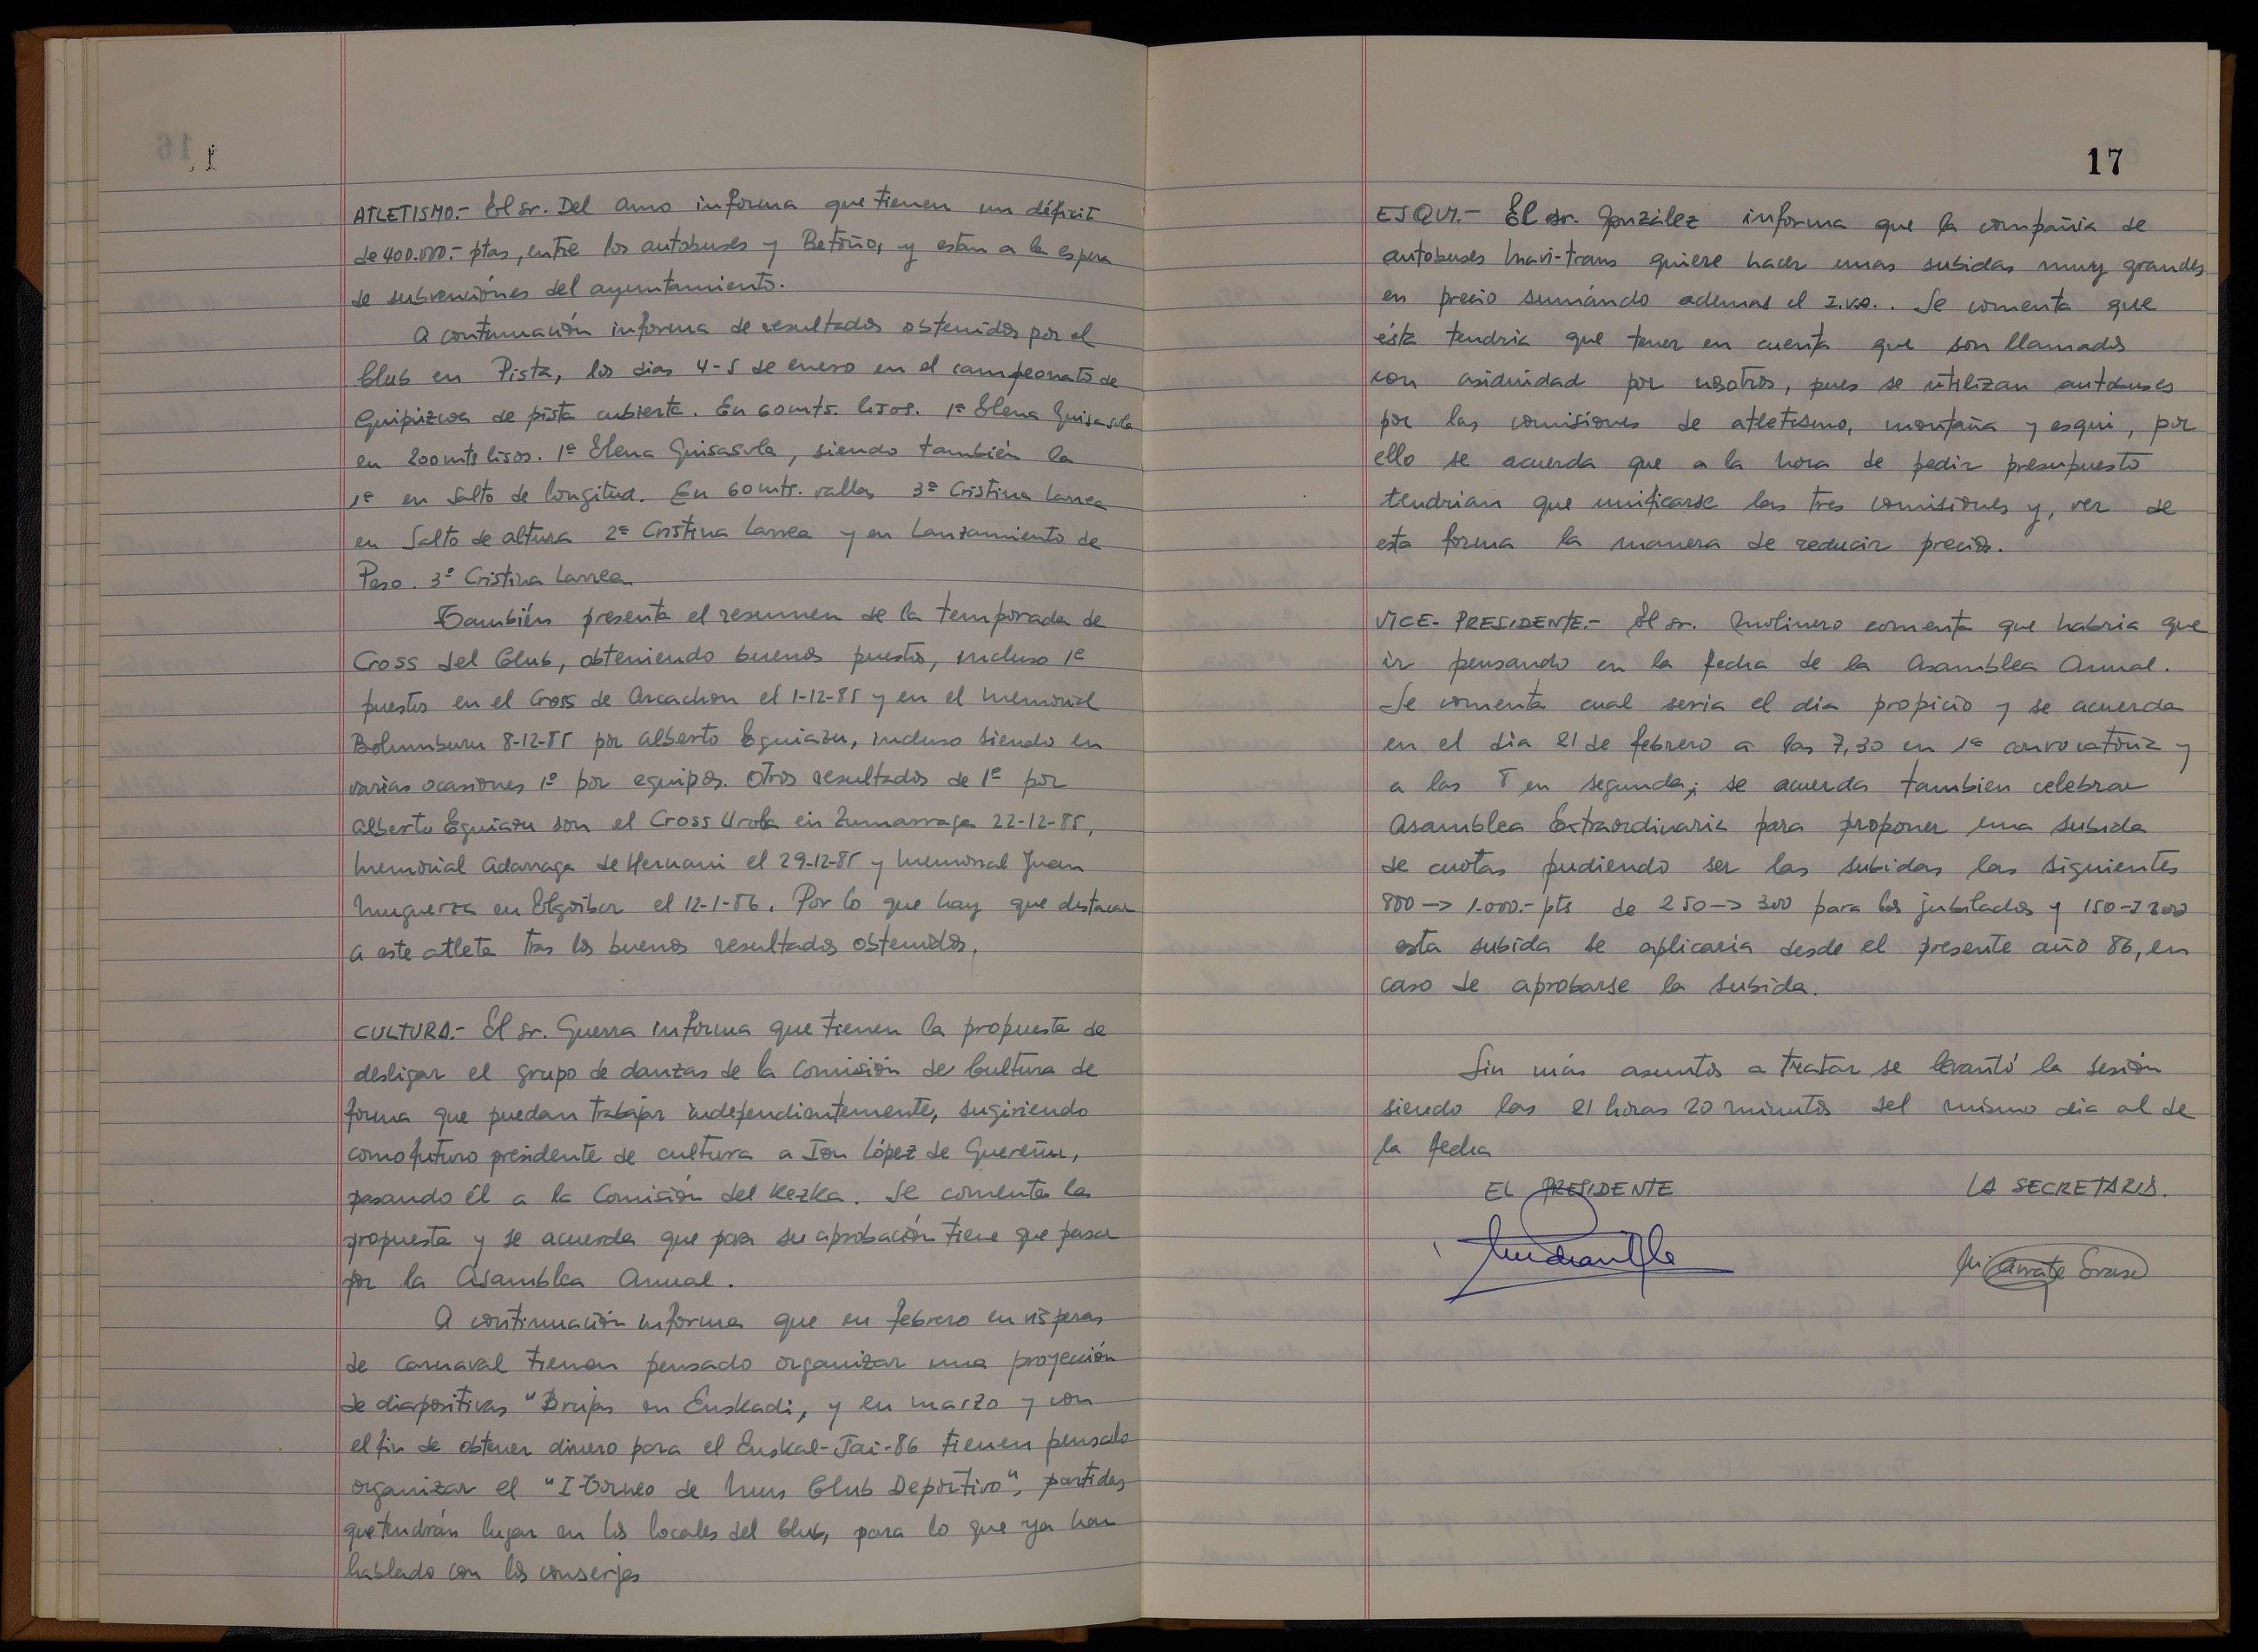 ATLETISMO.- El sr. Del Amo informa que tienen un déficit
de 400.000.- ptas, entre los autobuses y Betoño, y estan a la espera
de subvenciónes del ayuntamiento.
A continuación informa de resultados obtenidos por el
Club en Pista, los dias 4-5 de enero en el campeonato de
Guipúzcoa de pista cubierta. En 60 mts. lisos. 1ª Elena Guisasola
en 200 mts lisos. 1ª Elena Guisasola, siendo también la
1ª en Salto de longitud. En 60 mts. vallas 3ª Cristina Larrea
en Salto de altura 2ª Cristina Larrea y en Lanzamiento de
Peso. 3ª Cristina Larrea
También presenta el resumen de la temporada de
Cross del Club, obteniendo buenos puestos, incluso 1º
puestos en el Cross de Arcachon el 1-12-85 y en el memorial
Bolumburu 8-12-85 por Alberto Eguiazu, incluso siendo en
varias ocasiones 1º por equipos. Otros resultados de 1º por
Alberto Eguiazu son el Cross Urola en Zumarraga 22-12-85,
memorial Adarraga de Hernani el 29-12-85 y memorial Juan
Muguerza en Elgoibar el 12-1-86. Por lo que hay que destacar
a este atleta tras los buenos resultados obtenidos.
CULTURA.- El sr. Guerra informa que tienen la propuesta de
desligar el grupo de danzas de la Comisión de Cultura de
forma que puedan trabajar independientemente, sugiriendo
como futuro presidente de cultura a Ion López de Guereñu,
pasando él a la Comisión del Kezka. Se comenta la
propuesta y se acuerda que para su aprobación tiene que pasar
por la Asamblea Anual.
A continuación informa que en febrero en vísperas
de Carnaval tienen pensado organizar una proyección
de diapositivas "Brujas en Euskadi, y en marzo y con
el fin de obtener dinero para el Euskal-Jai-86 tienen pensado
organizar el "I Torneo de Mus Club Deportivo", partidas
que tendrán lugar en los locales del Club, para lo que ya han
hablado con los conserjes
17
ESQUI.- El sr. González informa que la compañia de
autobuses Mavi-trans quiere hacer unas subidas muy grandes
en precio sumándo ademas el I.V.A.. Se comenta que
ésta tendria que tener en cuenta que son llamados
con asiduidad por nosotros, pues se utilizan autobuses
por las comisiones de atletismo, montaña y esqui, por
ello se acuerda que a la hora de pedir presupuesto
tendrian que unificarse las tres comisiones y, ver de
esta forma la manera de reducir precios.
VICE-PRESIDENTE.- El sr. Molinero comenta que habria que
ir pensando en la fecha de la Asamblea Anual.
Se comenta cual seria el dia propicio y se acuerda
en el dia 21 de febrero a las 7,30 en 1ª convocatoria y
a las 8 en segunda; se acuerda tambien celebrar
Asamblea Extraordinaria para proponer una subida
de cuotas pudiendo ser las subidas las siguientes
800 -> 1.000.- pts de 250 -> 300 para los jubilados y 150 -> 200
esta subida se aplicaria desde el presente año 86, en
caso de aprobarse la subida.
Sin más asuntos a tratar se levantó la sesión
siendo las 21 horas 20 minutos del mismo dia al de
la fecha
EL PRESIDENTE LA SECRETARIA.